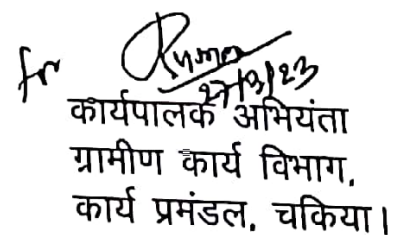 for
27/3/23
कार्यपालक अभियंता
ग्रामीण कार्य विभाग,
कार्य प्रमंडल, चकिया।